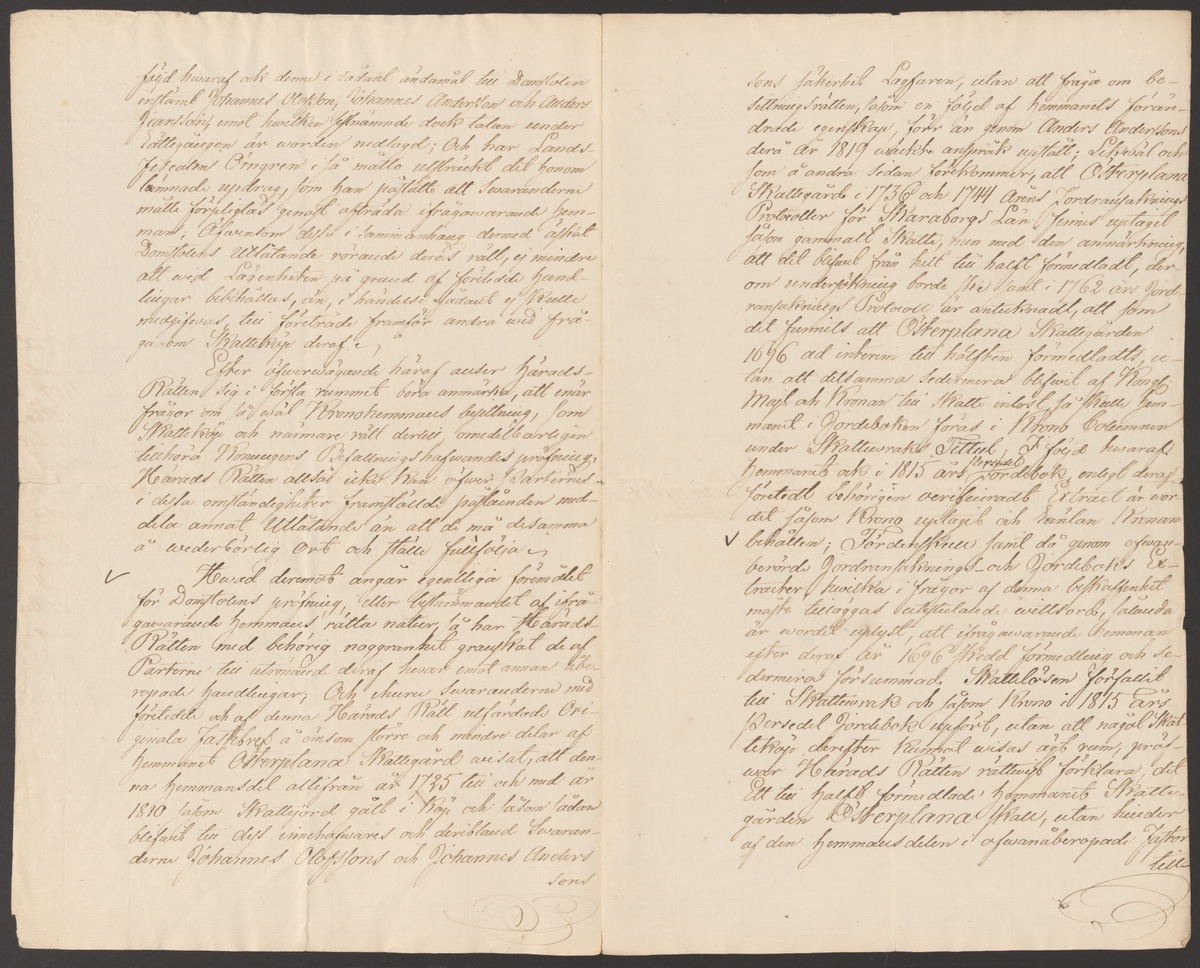 följd hwaraf ock denne i sådant ändamål till Domstolen
instämt Johannes Olofsson, Johannes Andersson och Anders
Jeansson, emot hwilken sistnämnde dock talan under
Rättegången är worden nedlagd; Och har Lands-
Fiscalen Örngren i så måtto utsträckt det honom
lämnade updrag, som han påstått att Swaranderne
måtte förpligtas genast afträda ifrågawarande hem-
man; Äfwensom desse i sammanhang dermed äskat
Domstolens Utlåtande rörande deras rätt, ej mindre
att wid Lägenheten på grund af företedde hand-
lingar bibehållas, än, i händelse sådant ej skulle
medgifwas, till företräde framför andra wid frå-
ga om Skatteköp deraf.
Efter öfwerwägande häraf anser Härads-
Rätten sig i första rummet böra anmärka, att enär
frågor om så wäl Kronohemmans besittning, som
Skatteköp och närmare rätt dertill, omedelbarligen
tillhöra Konungens Befallningshafwandes pröfning,
Härads Rätten alltså icke kan öfwer Parternes
i dessa omständigheter framställde påståenden med-
dela annat Utlåtande än att de må desamma
å wederbörlig ort och ställe fullfölja.
Hwad deremot angår egentliga föremålet
för Domstolens pröfning, eller bestämmandet af ifrå-
gawarande hemmans rätta natur, så har Härads
Rätten med behörig noggranhet granskat de af
Parterne till utrönande deraf hwar emot annan åbe-
ropade handlingar; Och ehuru Swaranderne med
företedde och af denna Härads Rätt utfärdade Ori-
ginala Fastebref å ömsom större och mindre delar af
hemmanet Österplana Skattegård wisat, att den-
na hemmansdel alltifrån år 1725 till och med år
1810 såsom Skattejord gått i köp och såsom sådan
blifwit till dess innehafwares och deribland Swaran-
derne Johannes Olofssons och Johannes Anders
sons
sons säkerhet Lagfaren, utan att fråga om be-
sittningsrätten, såsom en följd af hemmanets förän-
drade egenskap, förr än genom Anders Anderssons
derå år 1819 wäckte anspråk upstått; Likwäl och
som å andra sidan förekommer, att Österplana
Skattegård i 1736 och 1744 Årens Jordransaknings
Protocoller för Skaraborgs Län finnes uptaget
såsom gammalt Skatte, men med den anmärkning,
att det blifwit från helt till halft förmedladt, der-
om undersökning borde ske samt i 1762 års Jord-
ransaknings Protocoll är antecknadt, att som
det funnits att Österplana Skattegården
1696 ad interim till hälften förmedlats, u-
tan att detsamma sedermera blifwit af Kongl.
Maj:t och Kronan till Skatte inlöst, så skulle hem-
manet i Jordeboken föras i Krono Columnen
under Skattewraks Tittul; I följd hwaraf
hemmanet ock i 1815 års Persedel Jordebok enligt deraf
företedt behörigen verificeradt Extract är wor-
det såsom Krono uptaget och räntan Kronan
behållen; Fördenskull samt då genom ofwan-
berörde Jordransaknings- och Jordeboks Ex-
tracter hwilka i frågor af denna beskaffenhet
måste tilläggas witsord, således
är wordet uplyst, att ifrågawarande hemman
efter deraf år 1696 skedd förmedling och se-
dermera försummad Skattelösen förfallit
till Skattewrak och såsom Krono i 1815 Års
Persedel Jordebok upfört, utan att något Skat-
teköp derefter kunnat wisas ägt rum, pröf-
war Härads Rätten rättwist förklara, det
Ett till Halft förmedlade hemmanet Skatte-
gården Österplana skall, utan hinder
af den hemmansdelen i ofwanåberopade Fastor
till